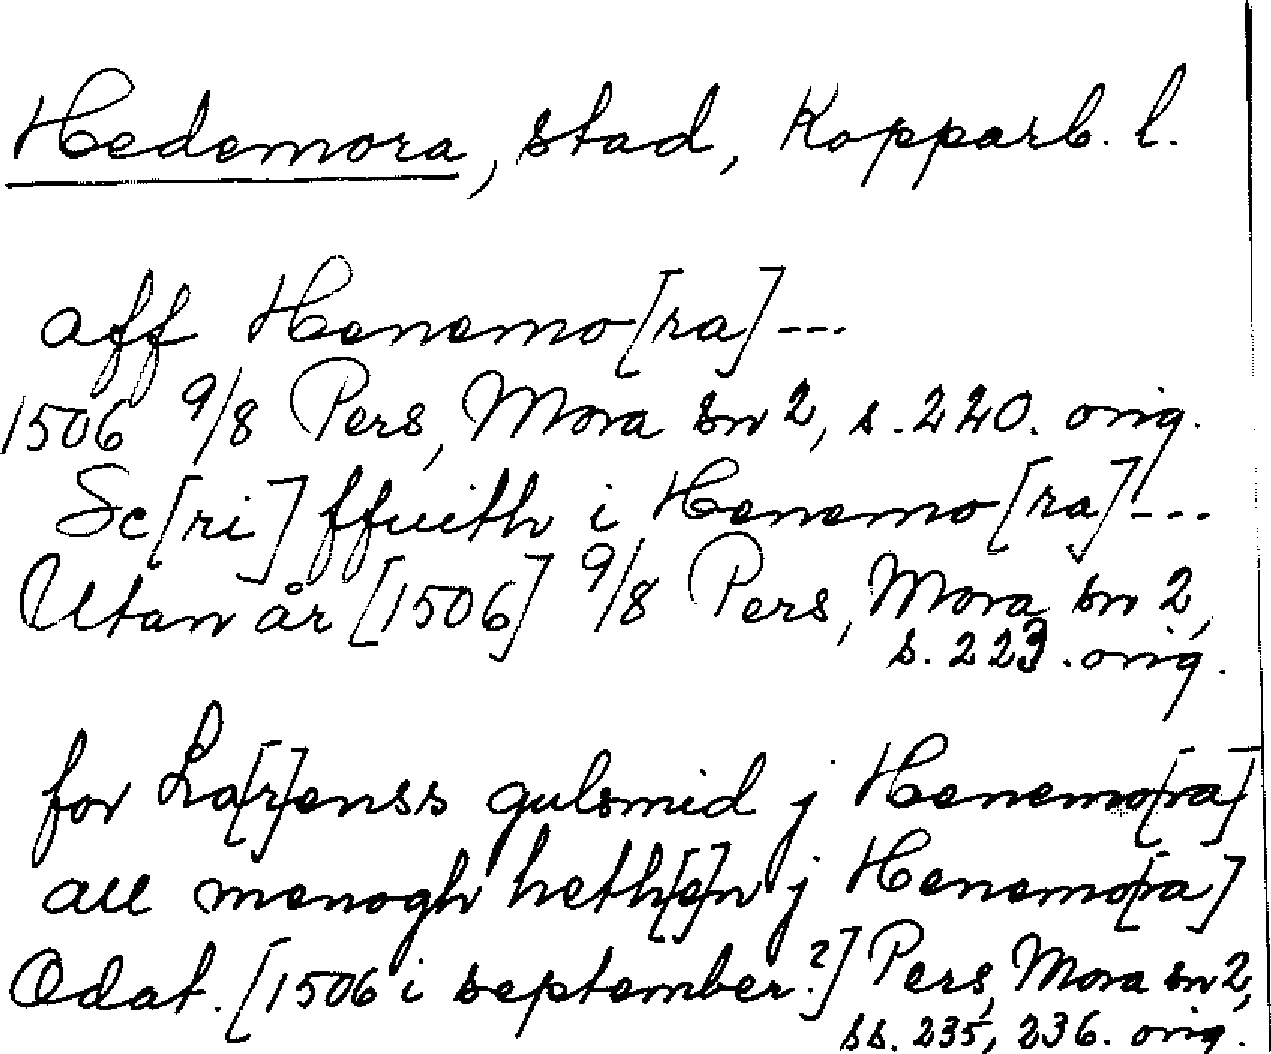 Hedemora, stad, Kopparb. l.
aff Henemo[ra]---
1506 9/8 Pers, Mora sn 2, s. 220. orig.
Sc[ri]ffuith i Henemo[ra]---
Utan år [1506] 9/8 Pers, Mora sn 2,
s. 223. orig.
for La[r]enss gulsmid j Henemo[ra]
all menogh heth[e]n j Henemo[ra]
Odat. [1506 i september?] Pers, Mora sn 2,
ss. 235, 236. orig.